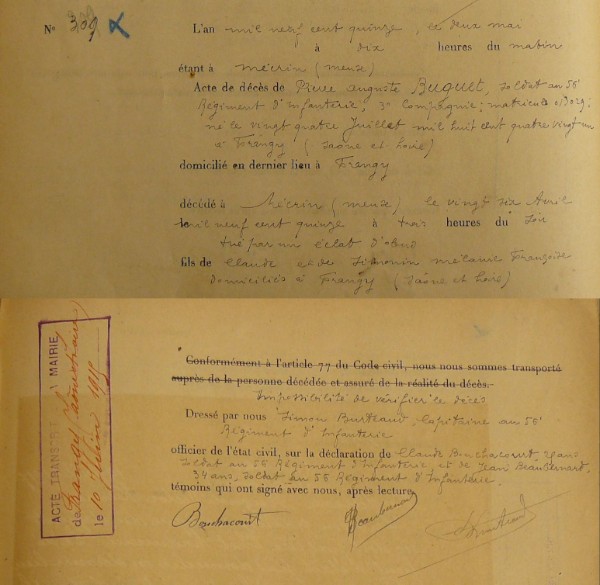 N° 309
L'an mil neuf cent quinze, le deux mai
à dix heures du matin
étant à Mécrin (Meuse)
Acte de décès de Pierre Auguste Buguet, soldat au 56e
Régiment d'Infanterie, 3e Compagnie; matricule
né le vingt quatre Juillet mil huit cent quatre vingt un
à Frangy (Saône et Loire)
domicilié en dernier lieu à Frangy
décédé à Mécrin (Meuse) le vingt six Avril
mil neuf cent quinze à trois heures du soir
tué par un éclat d'obus
fils de Claude et de Simonin Mélanie Françoise
domiciliés à Frangy (Saône et Loire)
Conformément à l'article 77 du Code civil, nous nous sommes transporté
auprès de la personne décédée et assuré de la réalité du décès.
Impossibilité de vérifier le décès
Dressé par nous Simon Burteaud, Capitaine au 56e
Régiment d'Infanterie
officier de l'état civil, sur la déclaration de Claude Bouchacourt ans
soldat au 56 Régiment d'Infanterie et de Jean
34 ans, soldat au 56 Régiment d'Infanterie.
témoins qui ont signé avec nous, après lecture.
Bouchacourt
ACTE TRANSCRIT A MAIRIE
de Frangy
le 10 1915